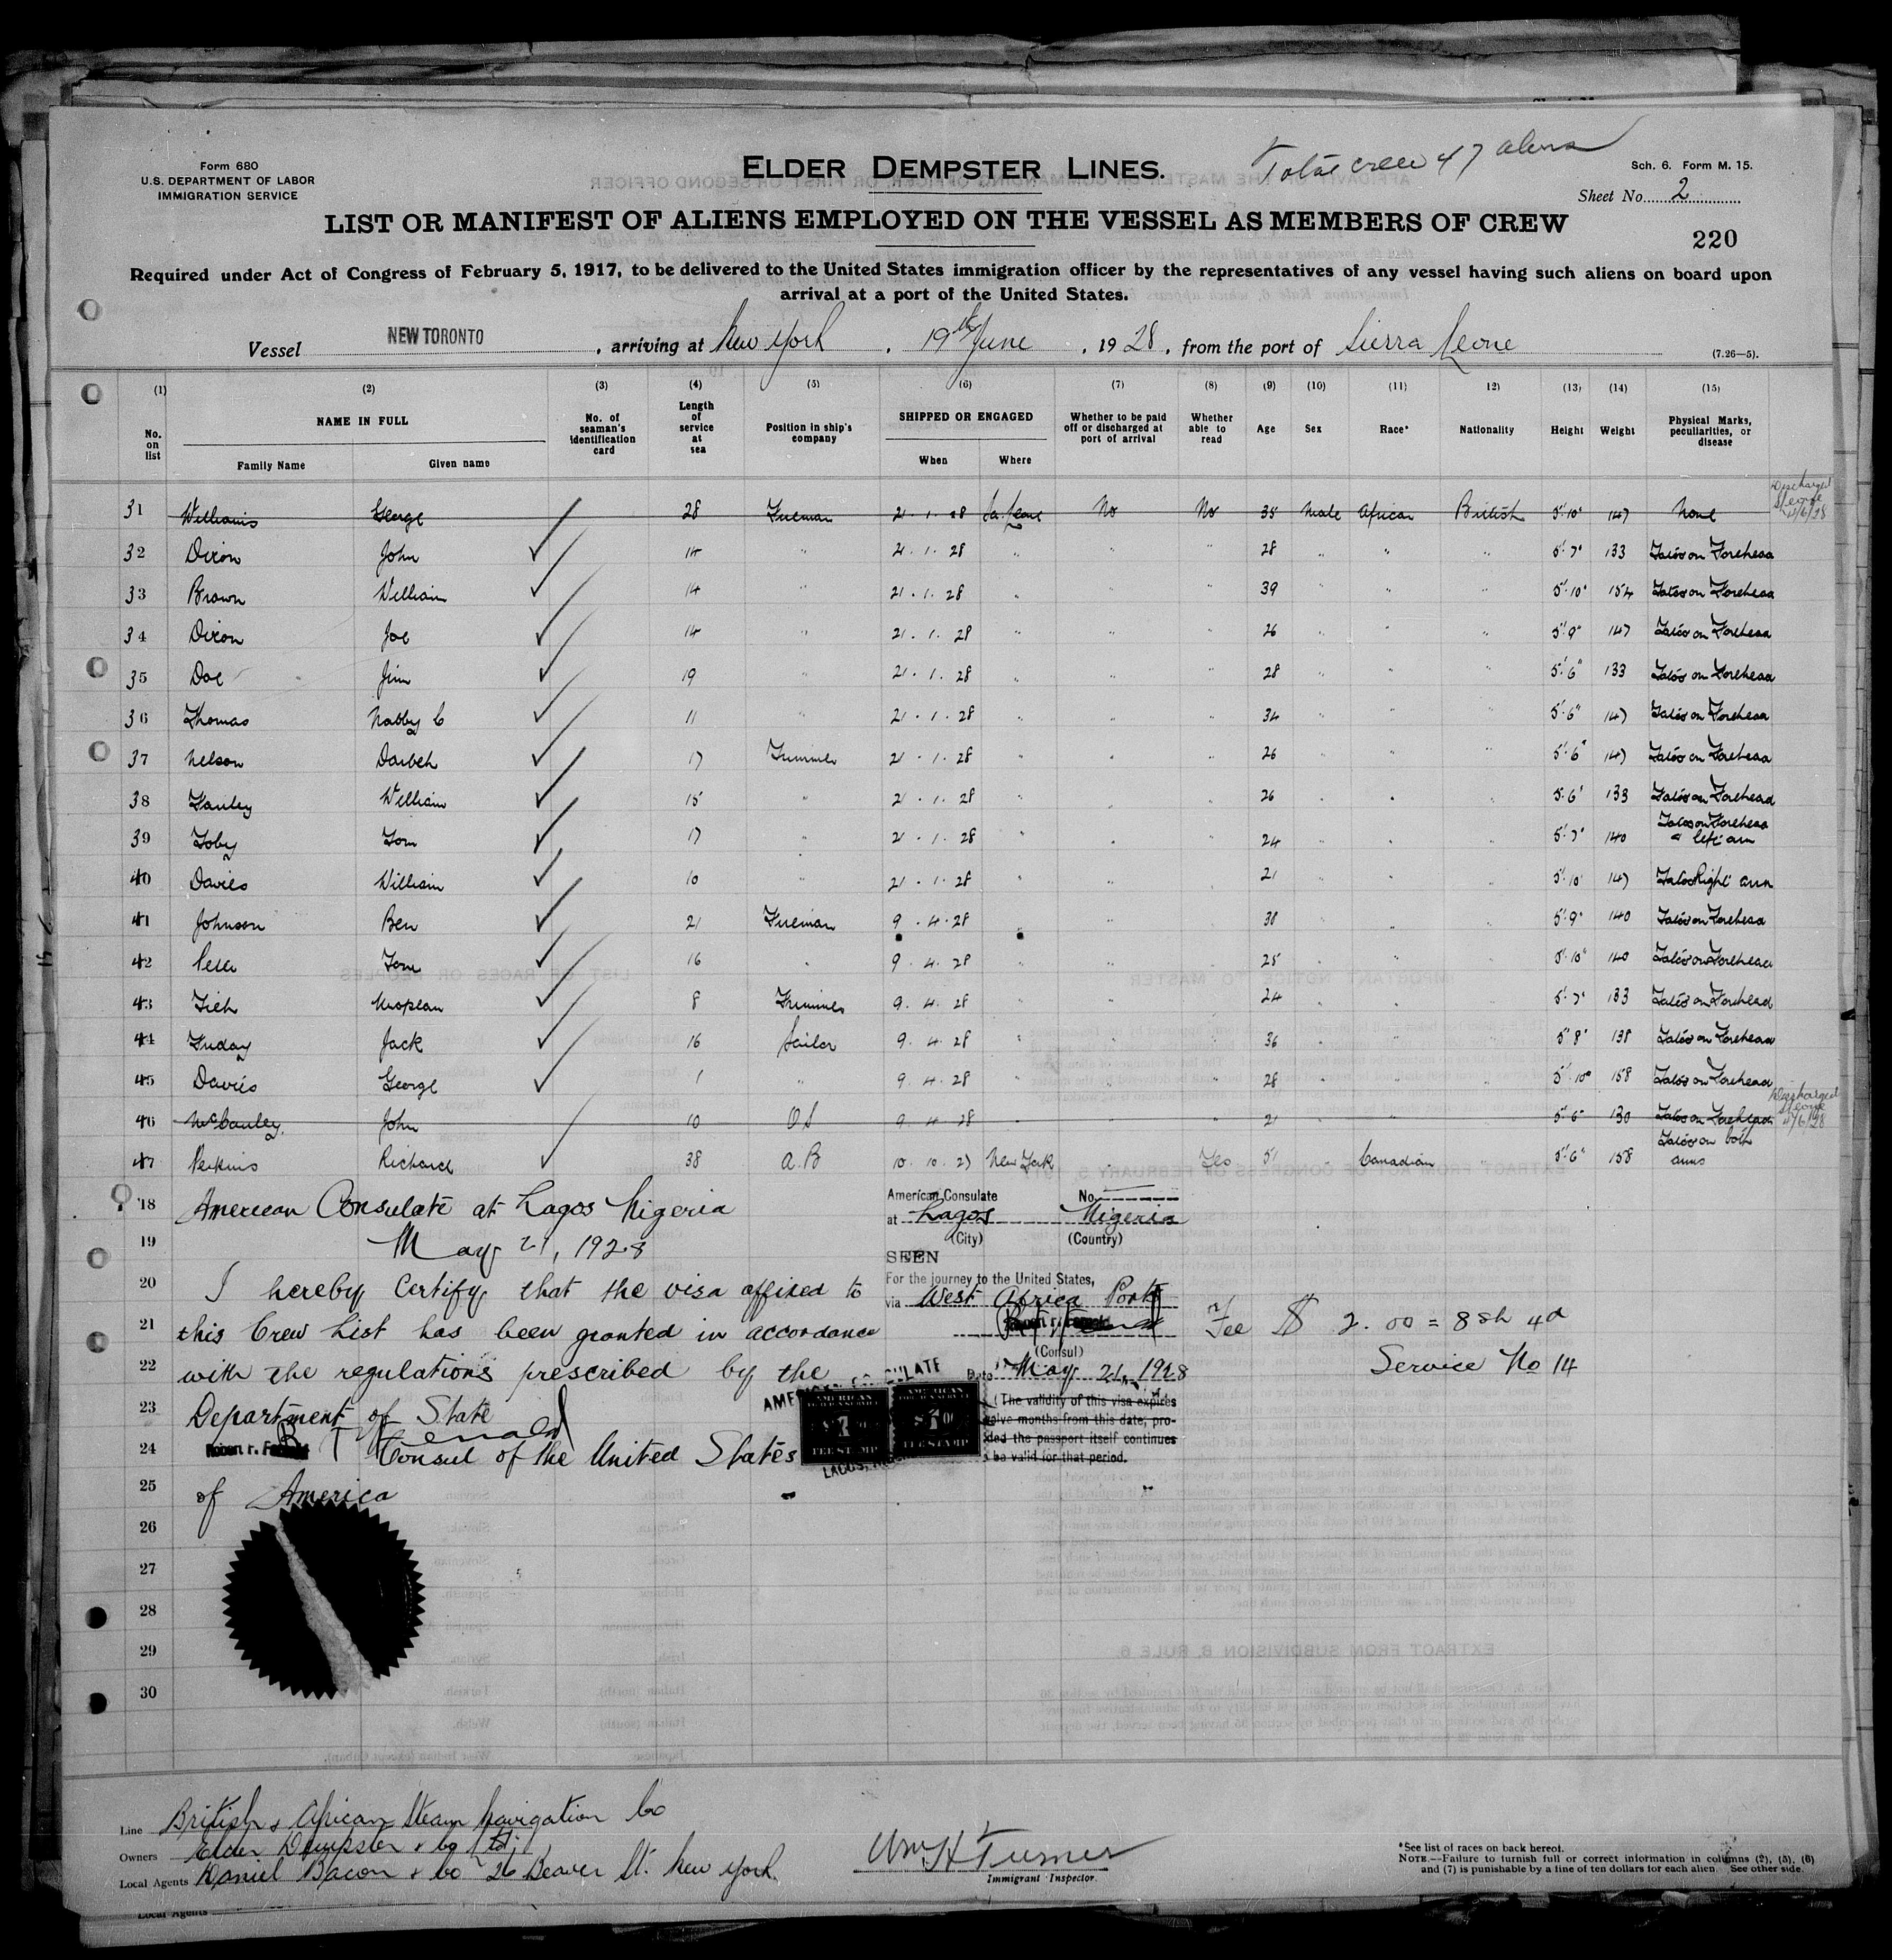 Form 680
U.S. DEPARTMENT OF LABOR
IMMIGRATION SERVICE
ELDER DEMPSTER LINES.
Total crew 47 aliens
Sch. 6. Form M. 15.
Sheet No. 2
LIST OR MANIFEST OF ALIENS EMPLOYED ON THE VESSEL AS MEMBERS OF CREW
220
Required under Act of Congress of February 5, 1917, to be delivered to the United States immigration officer by the representatives of any vessel having such aliens on board upon
arrival at a port of the United States.
Vessel NEW TORONTO, arriving at New York, 19th June, 1928, from the port of Sierra Leone (7.26—5).
(1) (2) (3) (4) (5) (6) (7) (8) (9) (10) (11) 12) (13) (14) (15)
No. on list NAME IN FULL Family Name Given name No. of seaman's identification card Length of service at sea Position in ship's company SHIPPED OR ENGAGED When Where Whether to be paid off or discharged at port of arrival Whether able to read Age Sex Race* Nationality Height Weight Physical Marks, peculiarities, or disease
31 Williams George 28 Fireman 21.1.28 Sa. Leone No No 35 Male African British 5'.10" 147 None Discharged S Leone 4/6/28
32 Dixon John 14 " 21.1.28 " " 28 " " " 5'.7" 133 Tatoo on Forehead
33 Brown William 14 21.1.28 " " 39 " " 5'.10" 154 Tatoo on Forehead
34 Dixon Joe 14 " 21.1.28 " " " 26 " " " 5'.9" 147 Tatoo on Forehead
35 Doe Jim 19 " 21.1.28 " " " 28 " " " 5'.6" 133 Tatoo on Forehead
36 Thomas Nabby C 11 " 21.1.28 " " " 34 " " " 5'.6" 147 Tatoo on Forehead
37 Nelson Darbeh 17 Trimmer 21.1.28 " " " 26 " " " 5'.6" 147 Tatoo on Forehead
38 William 15 " 21.1.28 " " " 26 " " " 5'.6" 133 Tatoo on Forehead
39 Toby Tom 17 " 21.1.28 " " " 24 " " " 5'.7" 140 Tatoo on Forehead & left arm
40 Davies William 10 " 21.1.28 " " " 21 " " " 5'.10" 147 Tatoo Right arm
41 Johnson Ben 21 Fireman 9.4.28 " " " 38 " " " 5'.9" 140 Tatoo on Forehead
42 Tom 16 " 9.4.28 " " " 25 " " " 5'.10" 140 Tatoo on Forehead
43 8 Trimmer 9.4.28 " " " 24 " " " 5'.7" 133 Tatoo on Forehead
44 Friday Jack 16 Sailor 9.4.28 " " " 36 " " " 5'.8" 138 Tatoo on Forehead
45 Davies George 1 " 9.4.28 " " " 28 " " " 5'.10" 158 Tatoo on Forehead
46 McCauley John 10 O.S 9.4.28 " " " 21 " " " 5'.6" 130 Tatoo on Forehead Discharged S Leone 4/6/28
47 Perkins Richard 38 A.B 10.10.27 New York " Yes 51 Canadian " 5'.6" 158 Tatoo on both arms
18 American Consulate at Lagos Nigeria
19 May 21, 1928
20 I hereby certify that the visa affixed to
21 this Crew List has been granted in accordance
22 with the regulations prescribed by the
23 Department of State
24 Consul of the United States
25 of America
26
27
28
29
30
American Consulate No.
at Lagos Nigeria
(City) (Country)
SEEN
For the journey to the United States,
via West Africa Ports
(Consul)
Date May 21, 1928
(The validity of this visa expires
twelve months from this date, pro-
vided the passport itself continues
to be valid for that period.
Fee $ 2.00 = 8sh 4d
Service No 14
AMERICAN CONSULATE
LAGOS,
AMERICAN
$1.00
FEE STAMP
AMERICAN
$1.00
FEE STAMP
Line British & African Steam Navigation Co
Owners Elder Dempster & Co Ltd
Local Agents Daniel Bacon & Co 26 Beaver St. New York.
Wm H Turner
Immigrant Inspector.
*See list of races on back hereof.
NOTE.—Failure to furnish full or correct information in columns (2), (5), (6)
and (7) is punishable by a fine of ten dollars for each alien. See other side.
Local Agents